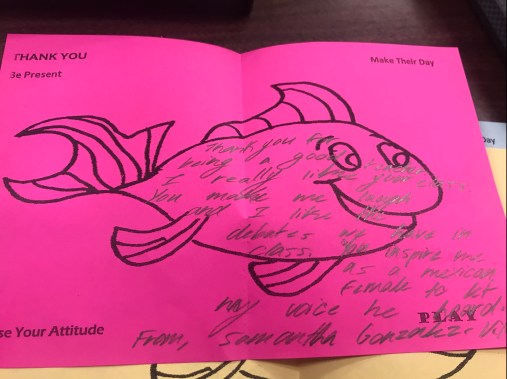 THANK YOU
Be Present
Make Their Day
Thank you for
being a good teacher
I really like your class.
You make me laugh
and I like the
debates we have in
class. You inspire me
as a mexican
female to let
my voice be heard.
PLAY
se Your Attitude
From, Samantha Gonzalez-
Day